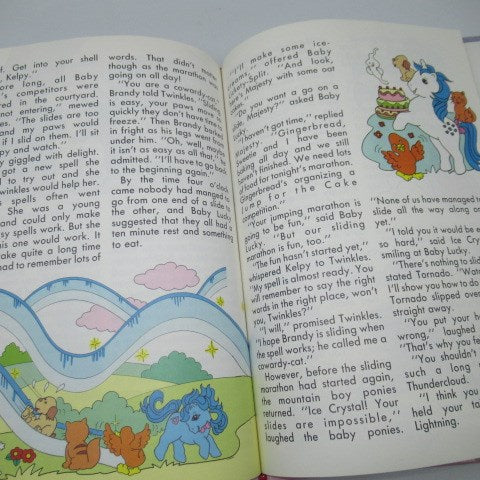 f. Get into your shell
, Kelpy."
ore long, all Baby
's competitors were
ered in the courtyard.
not entering," mewed
s. "The slides are too
and my paws would
if I slid on them. I'll sit
y and watch."
y giggled with delight.
got a new spell she
to try out and she
winkles would help her.
spells often went
She was a young
and could only make
sy spells work. But she
his one would work. It
ake quite a long time
had to remember lots of
words. That didn't
though as the marathon
going on all day!
"You are a coward-cat,"
Brandy told Twinkles. "Slid
is easy, your paws mo
quickly they don't have tim
freeze." Then Brandy bark
in fright as his legs went fr
under him. "Oh, well, m
it isn't as easy as all that,"
admitted. "I'll have to go b
to the beginning again."
By the time four o'clock
came nobody had manged to
go from one end of a slide to
the other, and Baby Lucky
suggested that they all had a
ten minute rest and something
to eat.
"I'll make some ice-
creams," offered Baby
Split. "And look,
Majesty with some oat
"Do you want a go on a
Majesty?" asked Baby
haven't got time," replied
Majesty. "Gingerbread,
Tweenie and I have been
baking all day and we still
haven't finished. We need lots
of food for tonight's marathon.
Gingerbread's organizing a
Jump for the Cake
competition."
"Your jumping marathon is
going to be fun," said Baby
Lucky. "But our sliding
marathon is fun, too."
"The fun hasn't started yet,"
whispered Kelpy to Twinkles.
"My spell is almost ready. You
will remember to say the right
words in the right place, won't
you, Twinkles?"
"I will," promised Twinkles.
"I hope Brandy is sliding when
the spell works; he called me a
cowardy-cat."
However, before the sliding
marathon had started again,
the mountain boy ponies
returned. "Ice Crystal! Your
slides are impossible,"
laughed the baby ponies.
"None of us have managed to
slide all the way along o
yet."
"I told you it would be
so hard," said Ice Crys
smiling at Baby Lucky.
"There's nothing to
stated Tornado. "Wat
I'll show you how to do
Tornado slipped over
straight away.
"You put your ho
wrong," laughed
"That's why you fe
"You shouldn't
such a long
Thundercloud.
"I think you
held your ta
Lightning.